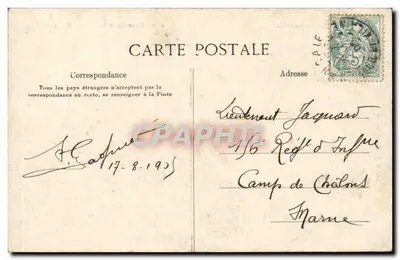 CARTE POSTALE
Correspondance
Tous les pays étrangers n'acceptent pas la
correspondance au recto, se renseigner à la Poste
17-8-1905
Adresse
Lieutenant Jaquard
156 Régt d'Infrie
Camp de Châlons
Marne
CPAPHIL